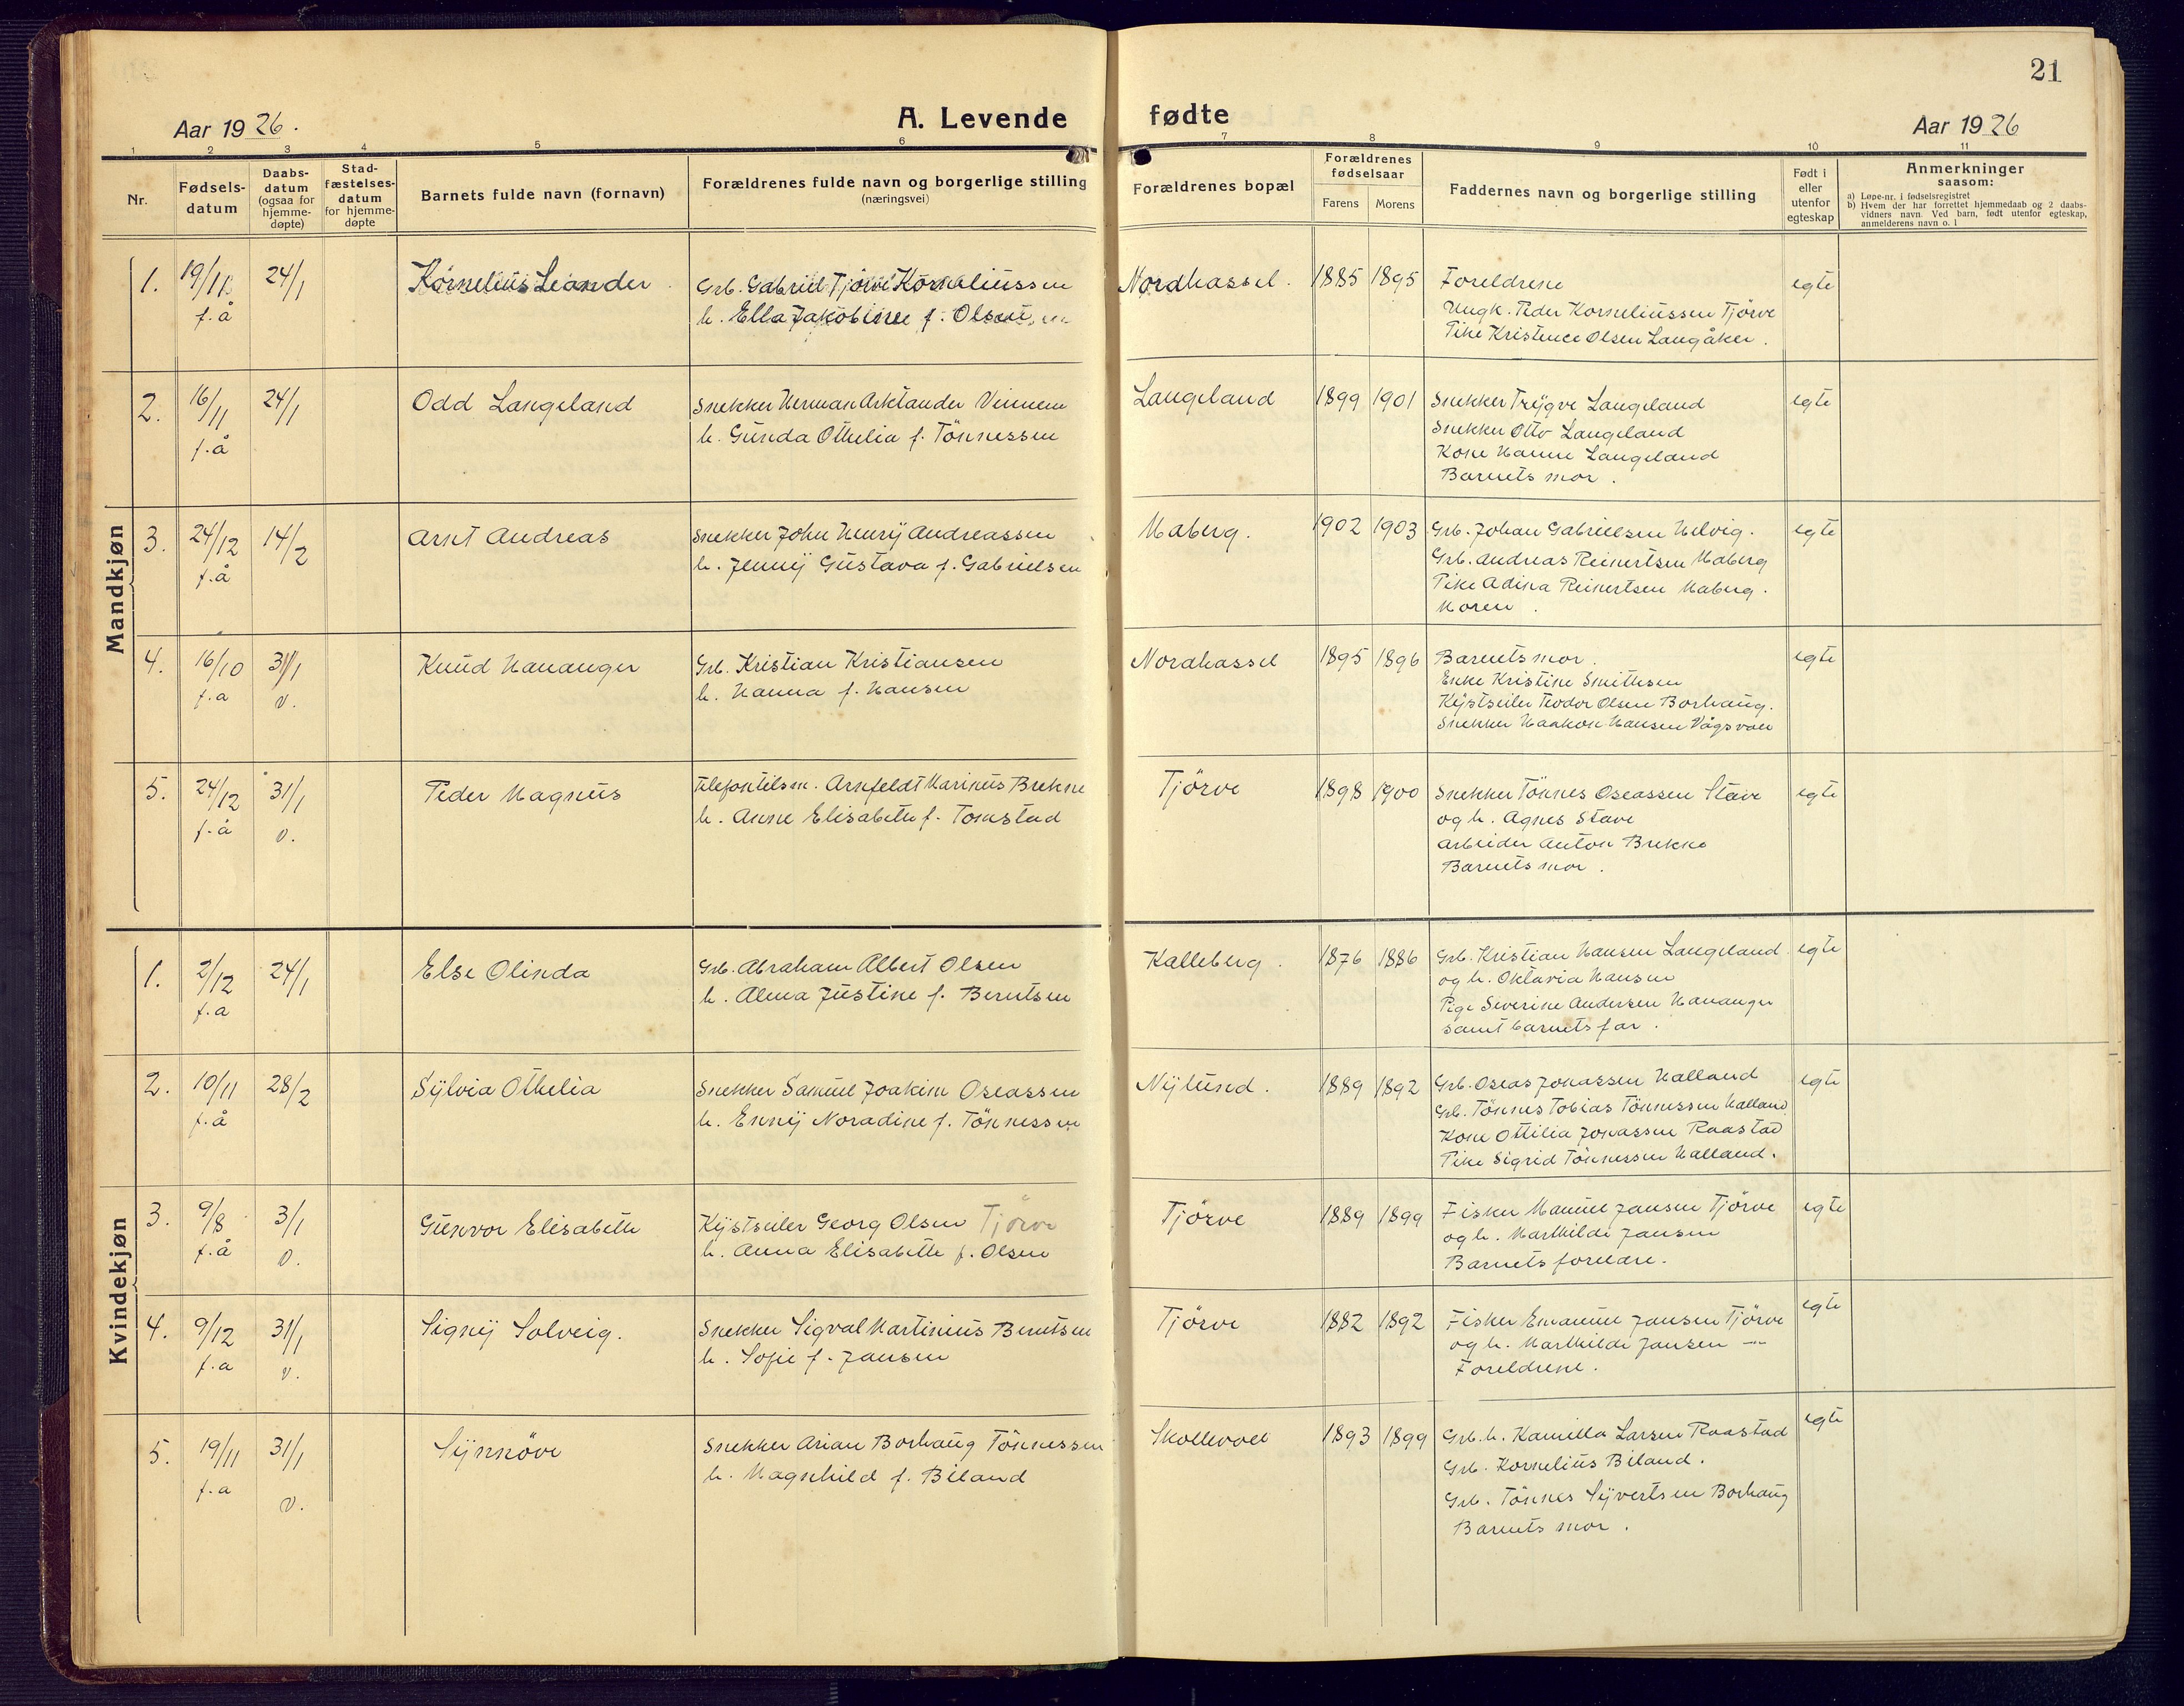 21
Aar 1926.
A. Levende
fødte
Aar 1926
1 2 3 4 5 6 7 8 9 10 11
Nr.
Fødsels-
datum
Daabs-
datum
(ogsaa for
hjemme-
døpte)
Stad-
fæstelses-
datum
for hjemme-
døpte
Barnets fulde navn (fornavn)
Forældrenes fulde navn og borgerlige stilling
(næringsvei)
Forældrenes bopæl
Forældrenes
fødselsaar
Farens Morens
Faddernes navn og borgerlige stilling
Født i
eller
utenfor
egteskap
Anmerkninger
saasom:
a) Løpe-nr. i fødselsregistret
b) Hvem der har forrettet hjemmedaab og 2 daabs-
vidners navn. Ved barn, født utenfor egteskap,
anmelderens navn o. l
Mandkjøn
1. 19/11 24/1 Kornelius Leander Grb. Gabriel Tjörve Korneliussen Nordhassel. 1885 1895 Foreldrene egte
f.å h. Ella Jakobine f. Olsen Ungk. Peder Korneliussen Tjörve
Pike Kristence Olsen Langåker.
2. 16/11 24/1 Odd Langeland Snekker Herman Arktander Vinnem Langeland 1899 1901 Snekker Trygve Langeland egte
f.å h. Gunda Othelia f. Tönnessen Snekker Otto Langeland
Kone Hanne Langeland
Barnets mor.
3. 24/12 14/2 Arnt Andreas Snekker John Henry Andreassen Maberg. 1902 1903 Grb. Johan Gabrielsen Helvig. egte
f.å h. Jenny Gustava f. Gabrielsen Grb. Andreas Reinertsen Maberg
Pike Adina Reinertsen Maberg.
Moren.
4. 16/10 31/1 Knud Hananger Grb. Kristian Kristiansen Nordhassel 1895 1896 Barnets mor. egte
f.a v. h. Hanna f. Hansen Enke Kristine Smithsen
Kystseiler Teodor Olsen Borhaug.
Snekker Haakon Hansen Vågsvoll
5. 24/12 31/1 Peder Magnus telefontilsm. Arnfeldt Marinus Brekne Tjörve 1898 1900 Snekker Tönnes Oseassen Stave egte
f.å v. h. Anne Elisabeth f. Tomstad og h. Agnes Stave
arbeider Anton Brekke
Barnets mor.
Kvindekjøn
1. 2/12 24/1 Else Olinda Grb. Abraham Albert Olsen Kalleberg. 1876 1886 Grb. Kristian Hansen Langeland egte
f.a h. Alma Justine f. Berntsen og h. Oktavia Hansen
Pige Severine Andersen Hananger
samt barnets far.
2. 10/11 28/2 Sylvia Othelia Snekker Samuel Joakim Oseassen Nylund. 1889 1892 Grb. Oseas Jonassen Halland egte
f.å h. Enny Noradine f. Tönnessen Grb. Tönnes Tobias Tönnessen Halland
Kone Ottilia Jonassen Raastad
Pike Sigrid Tönnessen Halland.
3. 9/8 3/1 Gunvor Elisabeth Kystseiler Georg Olsen Tjörve Tjörve 1889 1899 Fisker Manuel Jansen Tjörve egte
f.å v. h. Anna Elisabeth f. Olsen og h. Marthilde Jansen
Barnets foreldre.
4. 9/12 31/1 Signy Solveig. Snekker Sigval Martinius Berntsen Tjörve 1882 1892 Fisker Emanuel Jansen Tjörve egte
f.a v. h. Sofie f. Jansen og h. Marthilde Jansen —"—
Foreldrene.
5. 19/11 31/1 Synnöve Snekker Arian Borhaug Tönnessen Skollevoll 1893 1899 Grb. h. Kamilla Larsen Raastad egte
f.a v. h. Magnhild f. Biland Grb. Kornelius Biland.
Grb. Tönnes Syvertsen Borhaug
Barnets mor.